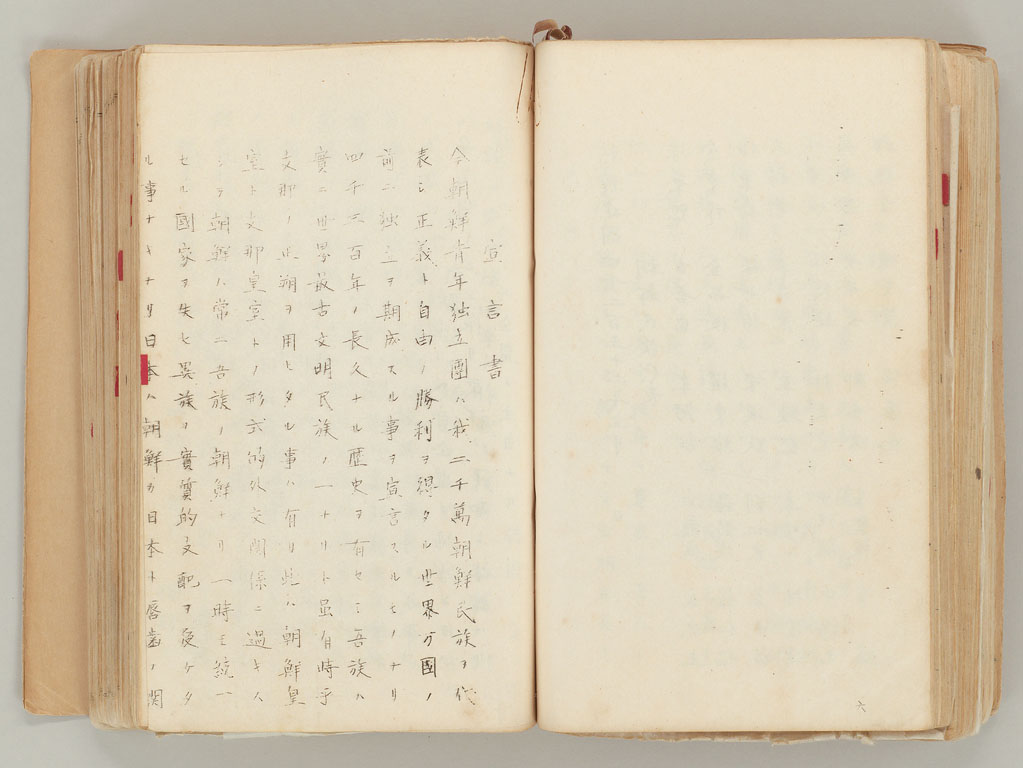 宣言書
全朝鮮青年独立團ハ我二千萬朝鮮民族ヲ代
表シ正義ト自由ノ勝利ヲ得タル世界万國ノ
前ニ独立ヲ期成スル事ヲ宣言スルモノナリ
四千三百年ノ長久ナル歴史ヲ有セミ吾族ハ
實ニ世界最古文明民族ノ一ナリト虽有時乎
支那ノ正朔ヲ用ヒタル事ハ有リ此ハ朝鮮皇
室ト支那皇室トノ形式的外交関係ニ過キス
シテ朝鮮ハ常ニ吾族ノ朝鮮ナリ一時モ統一
セル國家ヲ失ヒ異族ノ實質的支配ヲ受ケタ
ル事ナキナリ日本ハ朝鮮カ日本ト唇歯ノ関
六